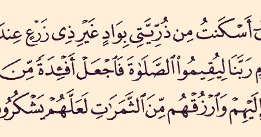 أَسْكَنتُ مِن ذُرِّيَّتِي بِوَادٍ غَيْرِ ذِي زَرْعٍ عِندَ
مِ رَبَّنَا لِيُقِيمُوا۟ ٱلصَّلَوٰةَ فَٱجْعَلْ أَفْـِٔدَةً مِّنَ
إِلَيْهِمْ وَٱرْزُقْهُم مِّنَ ٱلثَّمَرَٰتِ لَعَلَّهُمْ يَشْكُرُو